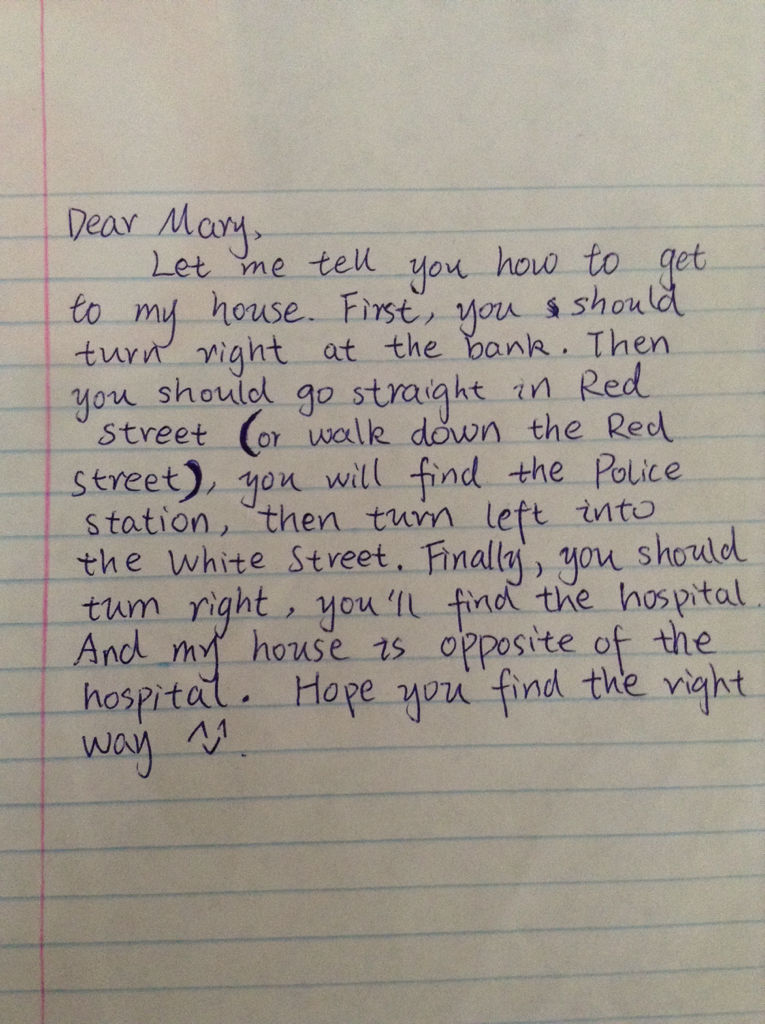 Dear Mary,
Let me tell you how to get
to my house. First, you should
turn right at the bank. Then
you should go straight in Red
street (or walk down the Red
street), you will find the Police
station, then turn left into
the White Street. Finally, you should
turn right, you'll find the hospital.
And my house is opposite of the
hospital. Hope you find the right
way